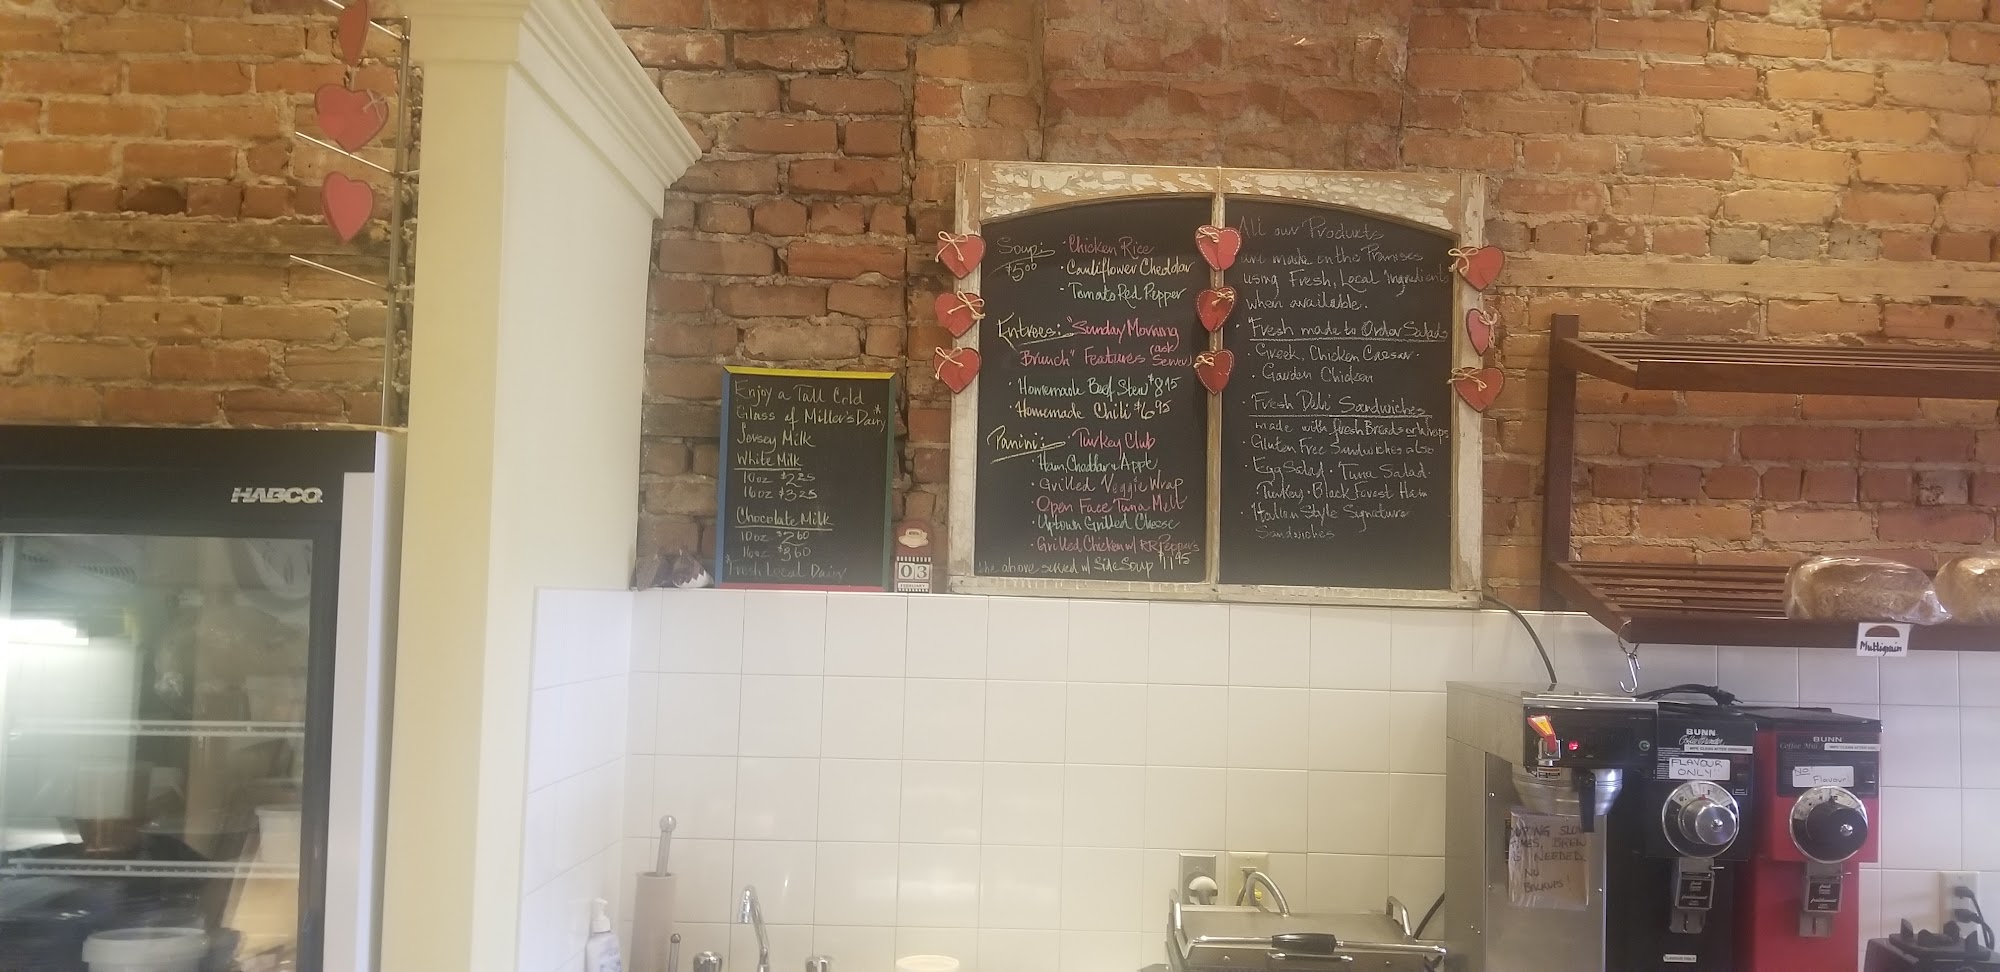 HABCO
Enjoy a Tall Cold
Glass of Miller's Dairy
Jersey Milk
White Milk
10oz $2.25
16oz $3.25
Chocolate Milk
10oz $2.60
16oz $3.60
Fresh Local Dairy
03
FEBRUARY
Soup: · Chicken Rice
$5.00 · Cauliflower Cheddar
· Tomato Red Pepper
Entrees: "Sunday Morning
Brunch" Features (ask Server)
· Homemade Beef Stew $8.95
· Homemade Chili $6.95
Panini: · Turkey Club
· Ham, Cheddar & Apple
· Grilled Veggie Wrap
· Open Face Tuna Melt
· Uptown Grilled Cheese
· Grilled Chicken w/ RR Peppers
the above served w/ Side Soup $11.95
All our Products
are made on the Premises
using Fresh, Local Ingredients
when available.
· "Fresh made to Order Salads
· Greek, Chicken Caesar ·
· Garden Chicken
· Fresh Deli Sandwiches
made with fresh Breads or Wraps
· Gluten Free Sandwiches also
· Egg Salad · Tuna Salad ·
· Turkey · Black Forest Ham
· Italian Style Signature
Sandwiches
Multigrain
BUNN
FLAVOUR
ONLY
BUNN
Coffee Mill
NO!
Flavour
DURING SLOW
TIMES, BREW
AS NEEDED.
NO
BACKUPS!